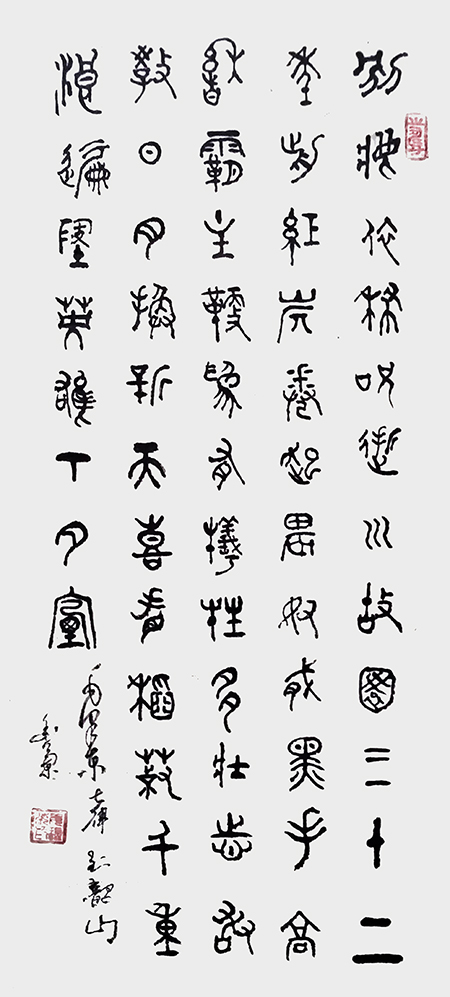 别夢依稀咒逝川故園三十二
年前紅旂卷起農奴戟黑手高
縣霸主鞭為有犧牲多壯志敢
教日月換新天喜看稻菽千重
浪遍地英雄下夕煙
毛澤東七律到韶山